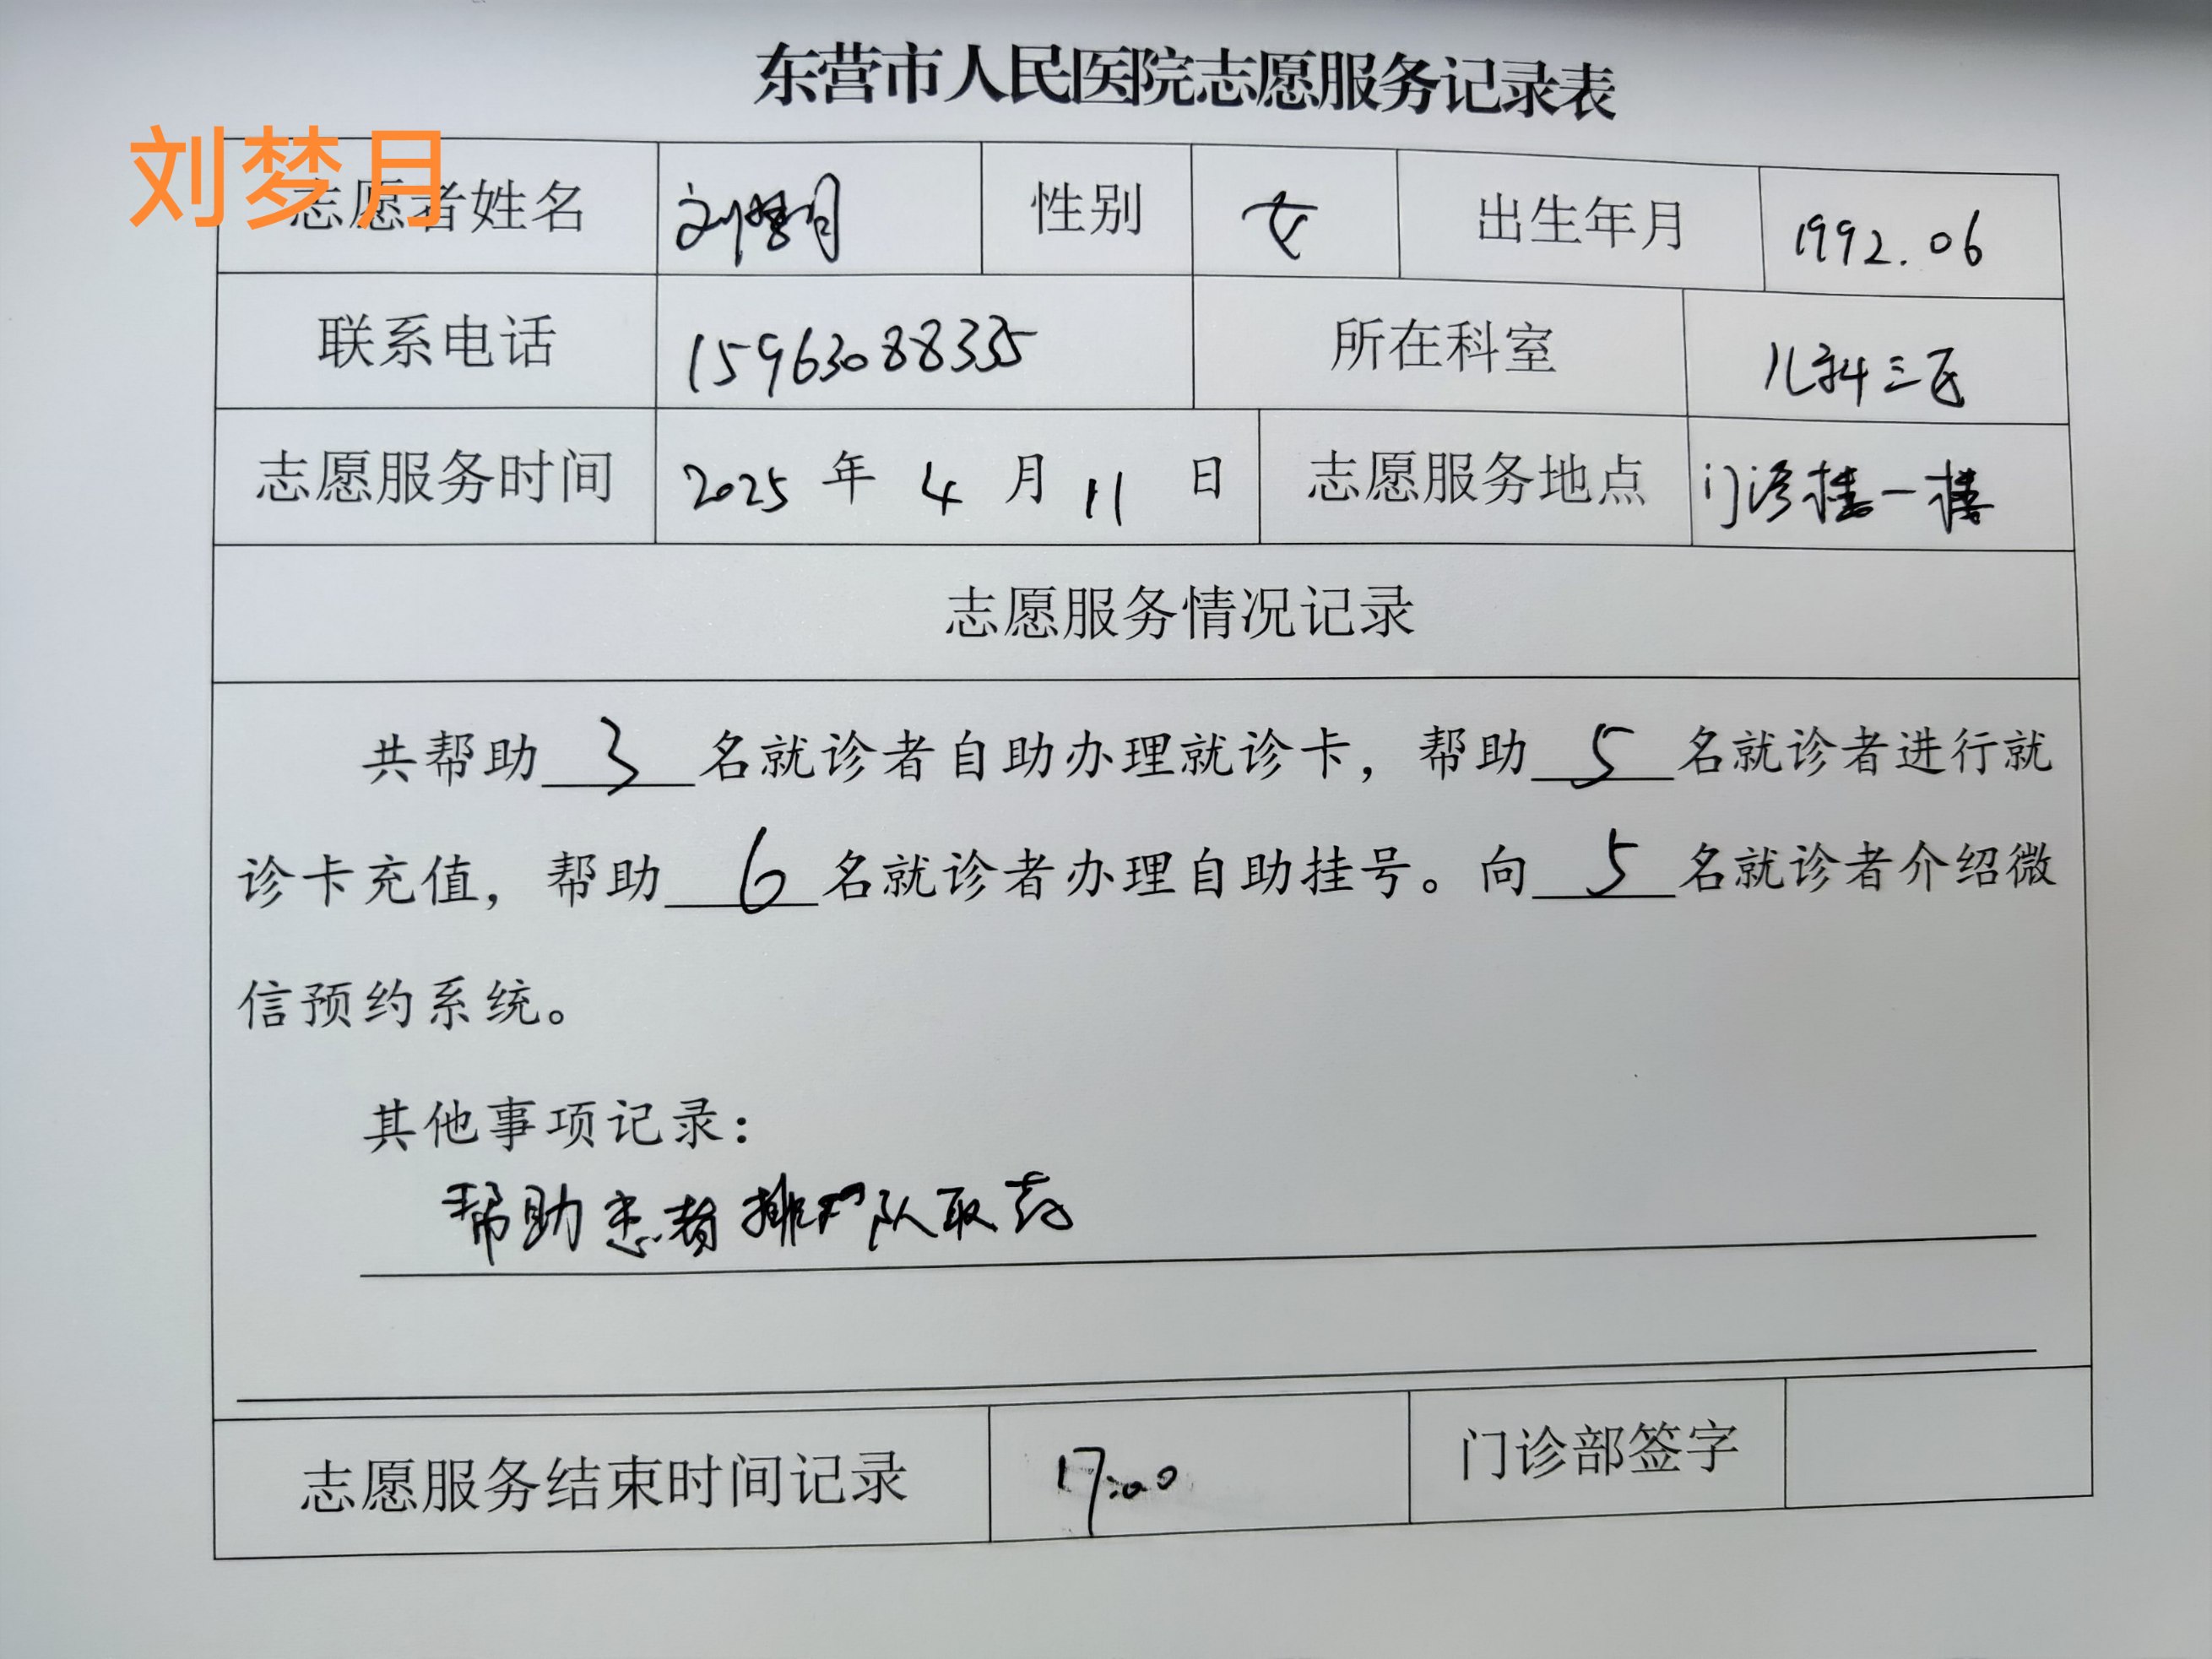 东营市人民医院志愿服务记录表
刘梦月
志愿者姓名 刘梦月 性别 女 出生年月 1992.06
联系电话 15963088335 所在科室 儿科三区
志愿服务时间 2025 年 4 月 11 日 志愿服务地点 门诊楼一楼
志愿服务情况记录
共帮助 3 名就诊者自助办理就诊卡，帮助 5 名就诊者进行就
诊卡充值，帮助 6 名就诊者办理自助挂号。向 5 名就诊者介绍微
信预约系统。
其他事项记录：
帮助患者排队取药
志愿服务结束时间记录 17:00 门诊部签字